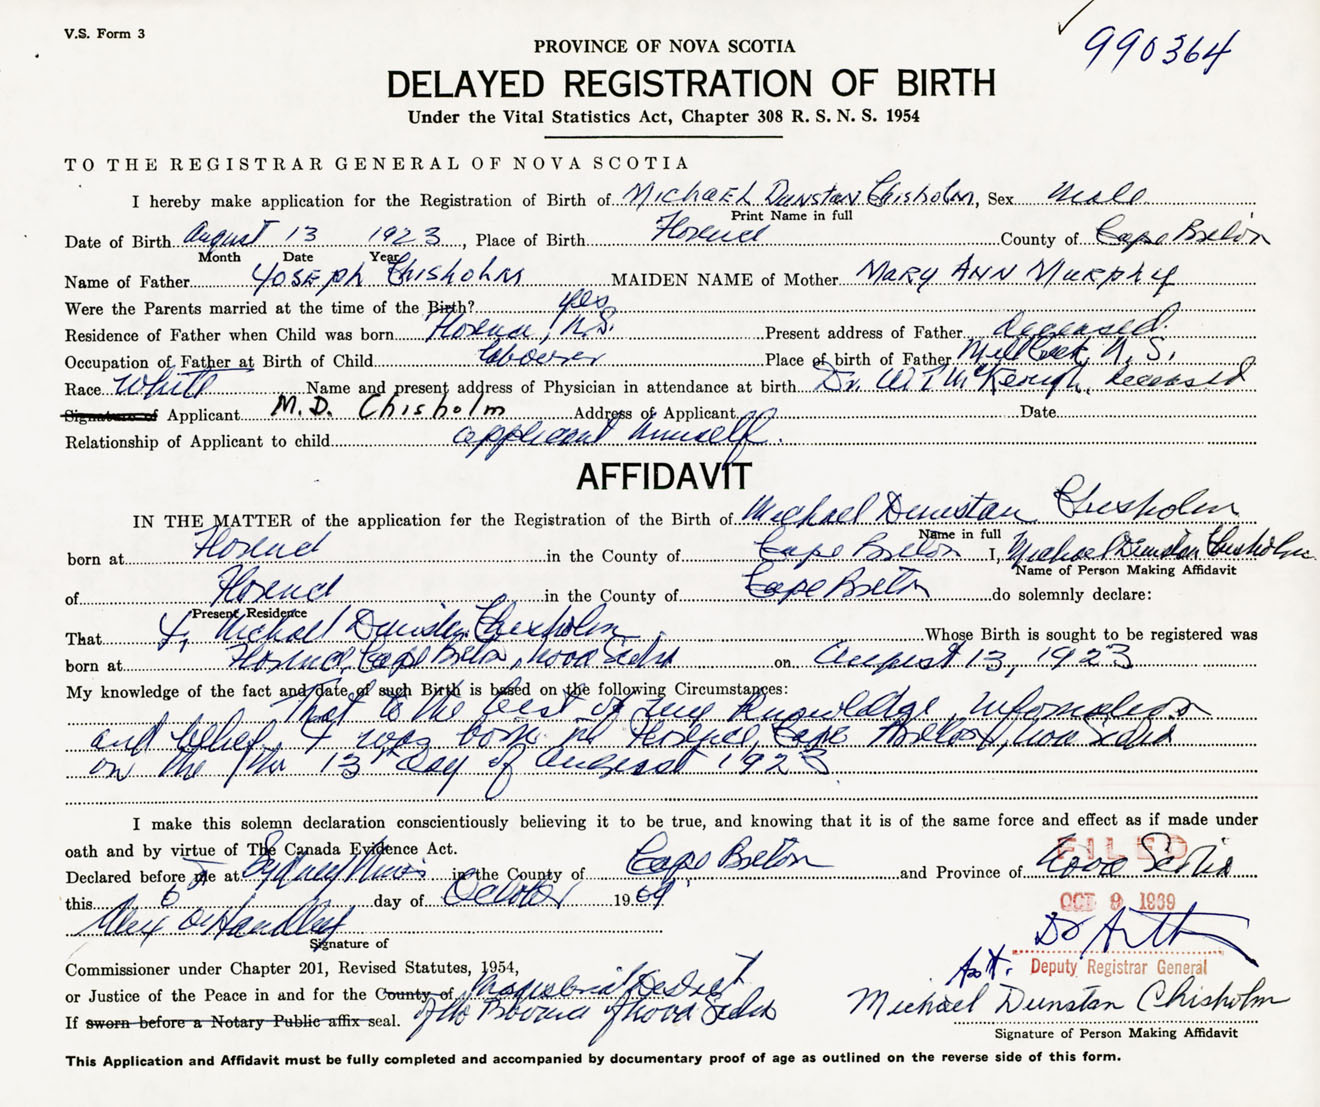 V.S. Form 3
990364
PROVINCE OF NOVA SCOTIA
DELAYED REGISTRATION OF BIRTH
Under the Vital Statistics Act, Chapter 308 R. S. N. S. 1954
TO THE REGISTRAR GENERAL OF NOVA SCOTIA
I hereby make application for the Registration of Birth of Michael Dunstan Chisholm, Sex Male
Print Name in full
Date of Birth August 13 1923, Place of Birth Florence County of Cape Breton
Month Date Year
Name of Father Joseph Chisholm MAIDEN NAME of Mother Mary Ann Murphy
Were the Parents married at the time of the Birth? Yes
Residence of Father when Child was born Florence, N.S. Present address of Father deceased.
Occupation of Father at Birth of Child labourer Place of birth of Father Mill Creek, N.S.
Race White Name and present address of Physician in attendance at birth Dr. W. McKeough, deceased
Signature of Applicant M. D. Chisholm Address of Applicant Date
Relationship of Applicant to child applicant himself.
AFFIDAVIT
IN THE MATTER of the application for the Registration of the Birth of Michael Dunstan Chisholm
Name in full
born at Florence in the County of Cape Breton I, Michael Dunstan Chisholm
Name of Person Making Affidavit
of Florence in the County of Cape Breton do solemnly declare:
Present Residence
That I, Michael Dunstan Chisholm Whose Birth is sought to be registered was
born at Florence, Cape Breton, Nova Scotia on August 13, 1923
My knowledge of the fact and date of such Birth is based on the following Circumstances:
That to the best of my knowledge, information
and belief, I was born in Florence, Cape Breton, Nova Scotia
on the 13th day of August 1923.
I make this solemn declaration conscientiously believing it to be true, and knowing that it is of the same force and effect as if made under
oath and by virtue of The Canada Evidence Act.
FILED
Declared before me at Sydney Mines in the County of Cape Breton and Province of Nova Scotia
this 6 day of October 1969
OCT 9 1969
Signature of
Deputy Registrar General
Commissioner under Chapter 201, Revised Statutes, 1954,
or Justice of the Peace in and for the County of Magisterial District
of the Province of Nova Scotia
If sworn before a Notary Public affix seal.
Michael Dunstan Chisholm
Signature of Person Making Affidavit
This Application and Affidavit must be fully completed and accompanied by documentary proof of age as outlined on the reverse side of this form.